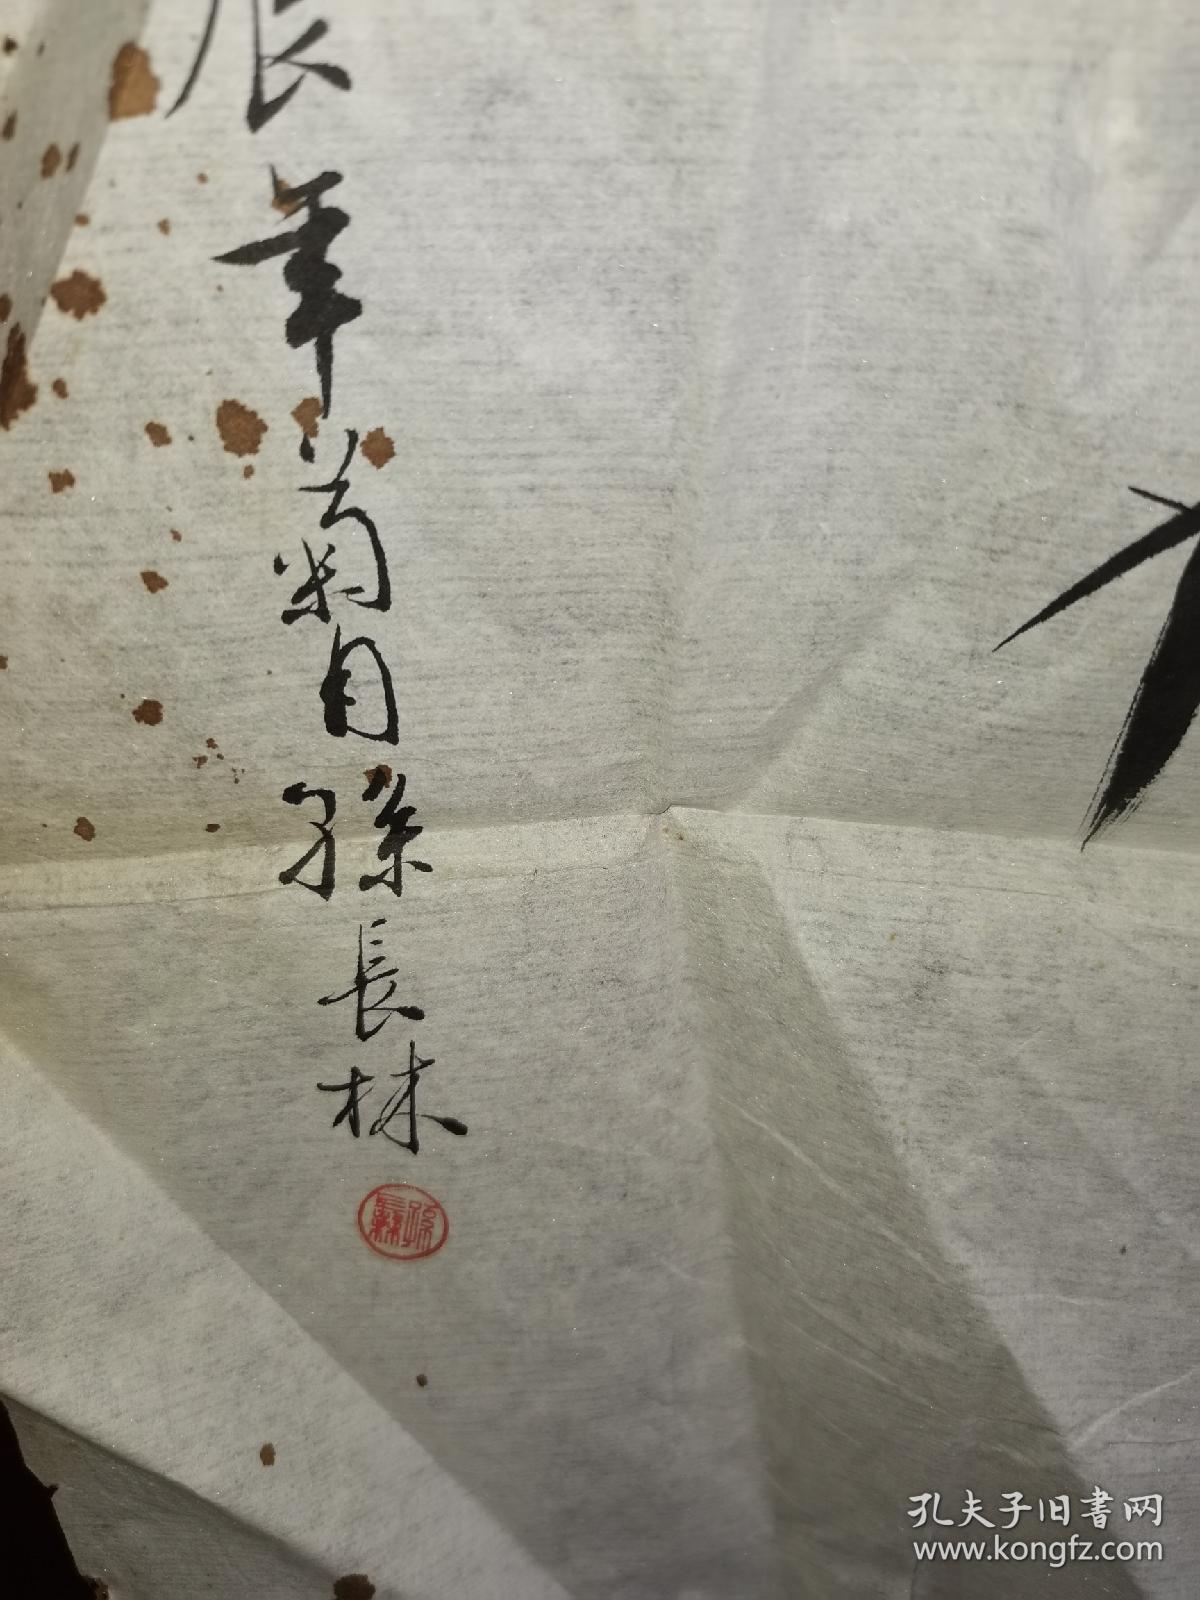 辰年菊月孫長林
孫長林
孔夫子旧書网
www.kongfz.com